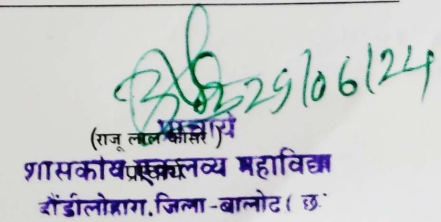 25/06/24
(राजू लाल कोसरे)
प्राचार्य
शासकीय एकलव्य महाविद्या
डौंडीलोहारा, जिला-बालोद ( छ.